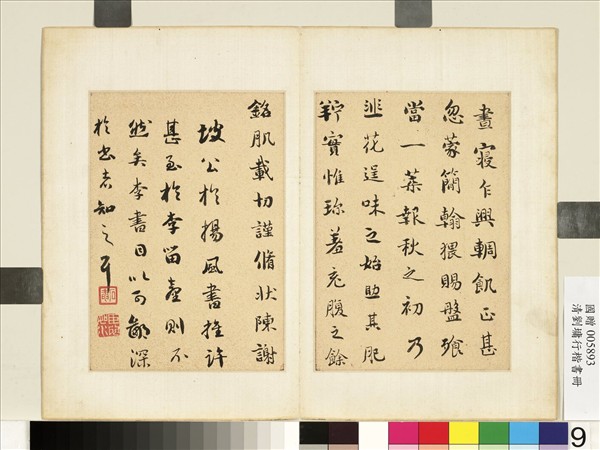 晝寢乍興輖飢正甚
忽蒙簡翰猥賜盤飧
當一葉報秋之初乃
韭花逞味之始助其肥
羜實惟珍羞充腹之餘
銘肌載切謹脩狀陳謝
坡公於楊風書推許
甚至於李留臺則不
然矣李書自以可
深
於書者知之耳
國贈 005893
清劉墉行楷書冊
9